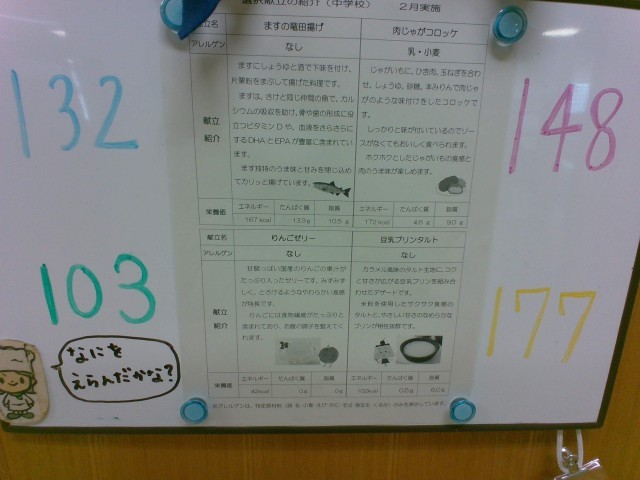 選択献立の紹介（中学校） 2月実施
132
148
103
177
なにを
えらんだかな?
献立名 ますの竜田揚げ 肉じゃがコロッケ
アレルゲン なし 乳・小麦
献立
紹介
ますにしょうゆと酒で下味を付け、
片栗粉をまぶして揚げた料理です。
ますは、さけと同じ仲間の魚で、カル
シウムの吸収を助け、骨や歯の形成に役
立つビタミンDや、血液をさらさらに
するDHAとEPAが豊富に含まれてい
ます。
ます独特のうま味と甘みを閉じ込め
てカリッと揚げています。
じゃがいもに、ひき肉、玉ねぎを合わ
せ、しょうゆ、砂糖、本みりんで肉じゃ
がのような味付けをしたコロッケで
す。
しっかりと味が付いているのでソー
スがなくてもおいしく食べられます。
ホクホクとしたじゃがいもの食感と
肉のうま味が楽しめます。
栄養価
エネルギー たんぱく質 脂質 エネルギー たんぱく質 脂質
167kcal 13.3g 10.5g 172kcal 4.6g 9.0g
献立名 りんごゼリー 豆乳プリンタルト
アレルゲン なし なし
献立
紹介
甘酸っぱい国産のりんごの果汁が
たっぷり入ったゼリーです。みずみず
しく、とろけるようなやわらかい食感
が特長です。
りんごには食物繊維がたっぷりと
含まれており、お腹の調子を整えてく
れます。
カラメル風味のタルト生地に、コク
と甘さが広がる豆乳プリンを組み合
わせたデザートです。
米粉を使用したサクサク食感の
タルトと、やさしい甘さのなめらかな
プリンが相性抜群です。
栄養価
エネルギー たんぱく質 脂質 エネルギー たんぱく質 脂質
42kcal 0g 0g 102kcal 0.5g 6.0g